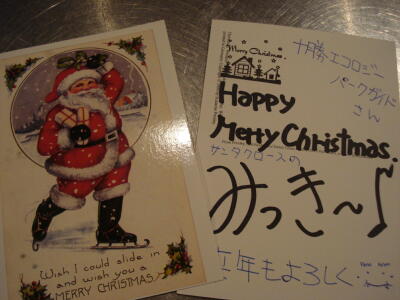 Wish I could slide in
and wish you a
MERRY CHRISTMAS
Merry Christmas
十勝エコロジー
パークガイド
さん
Happy
Merry Christmas.
サンタクロースの
みっき〜♪
年もよろしく